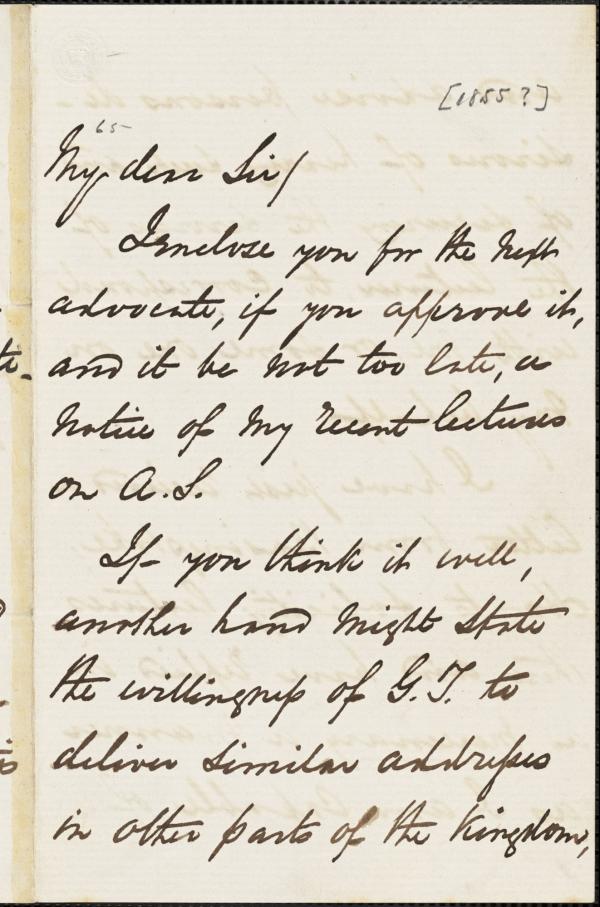 [1855?]
65
My dear Sir/
I enclose you for the next
advocate, if you approve it,
and it be not too late, a
notice of my recent lectures
on A.S.
If you think it well,
another hand might state
the willingness of G.T. to
deliver similar addresses
in other parts of the Kingdom,